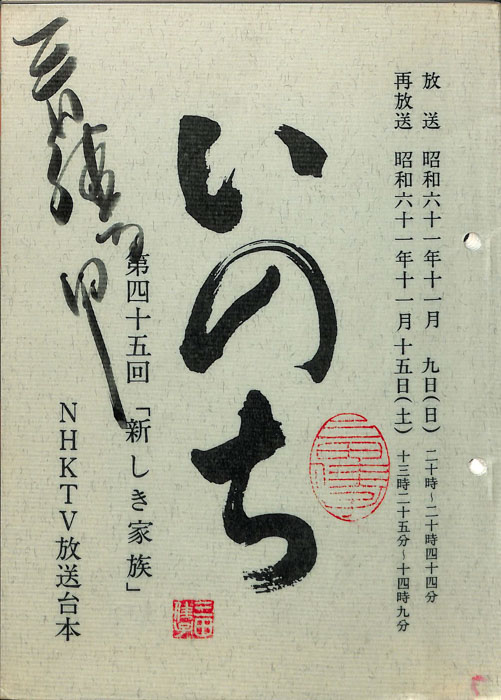 放　送　昭和六十一年十一月　九日(日)　二十時～二十時四十四分
再放送　昭和六十一年十一月十五日(土)　十三時二十五分～十四時九分
いのち
第四十五回「新しき家族」
NHKTV放送台本